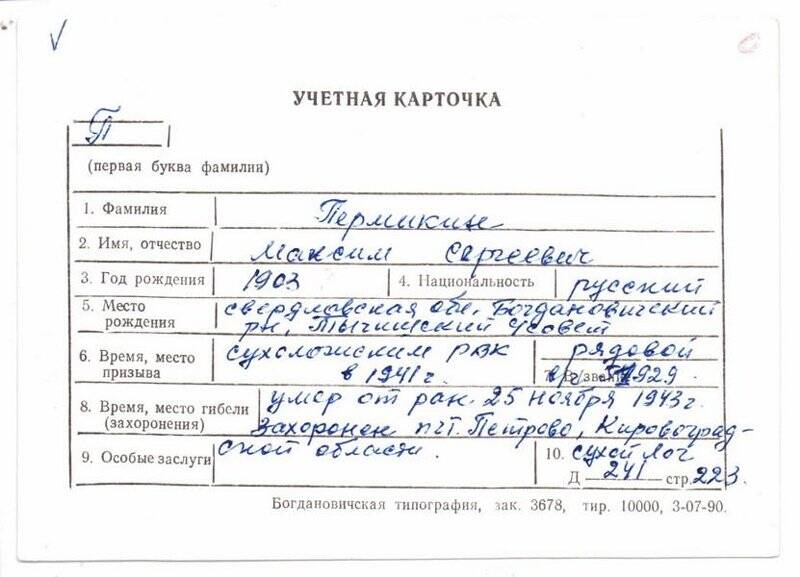 УЧЕТНАЯ КАРТОЧКА
П
(первая буква фамилии)
1. Фамилия Пермикин
2. Имя, отчество Максим Сергеевич
3. Год рождения 1903 4. Национальность русский
5. Место рождения свердловская обл. Богдановичский
рн, Тычинский с/совет
6. Время, место призыва сухоложским РВК
в 1941 г.
рядовой
7. В/звание 1929.
8. Время, место гибели (захоронения) умер от ран. 25 ноября 1943 г.
Захоронен пгт. Петрово, Кировоград-
ской области.
9. Особые заслуги
10. сухой Лог
Д 241 стр. 223.
Богдановичская типография, зак. 3678, тир. 10000, 3-07-90.